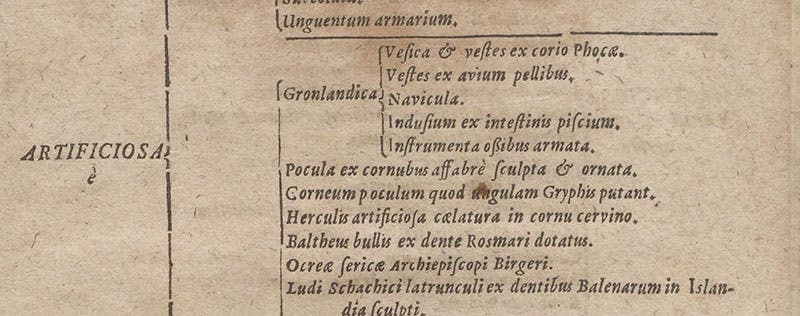 Unguentum armarium.
Veſica & veſtes ex corio Phocæ.
Veſtes ex avium pellibus.
Gronlandica
Navicula.
Induſium ex inteſtinis piſcium.
Inſtrumenta oßibus armata.
ARTIFICIOSA
è
Pocula ex cornubus affabrè ſculpta & ornata.
Corneum poculum quod ungulam Gryphis putant.
Herculis artificioſa cælatura in cornu cervino.
Baltheus bullis ex dente Rosmari dotatus.
Ocreæ ſericæ Archiepiſcopi Birgeri.
Ludi Schachici latrunculi ex dentibus Balenarum in Islan-
dia ſculpti.